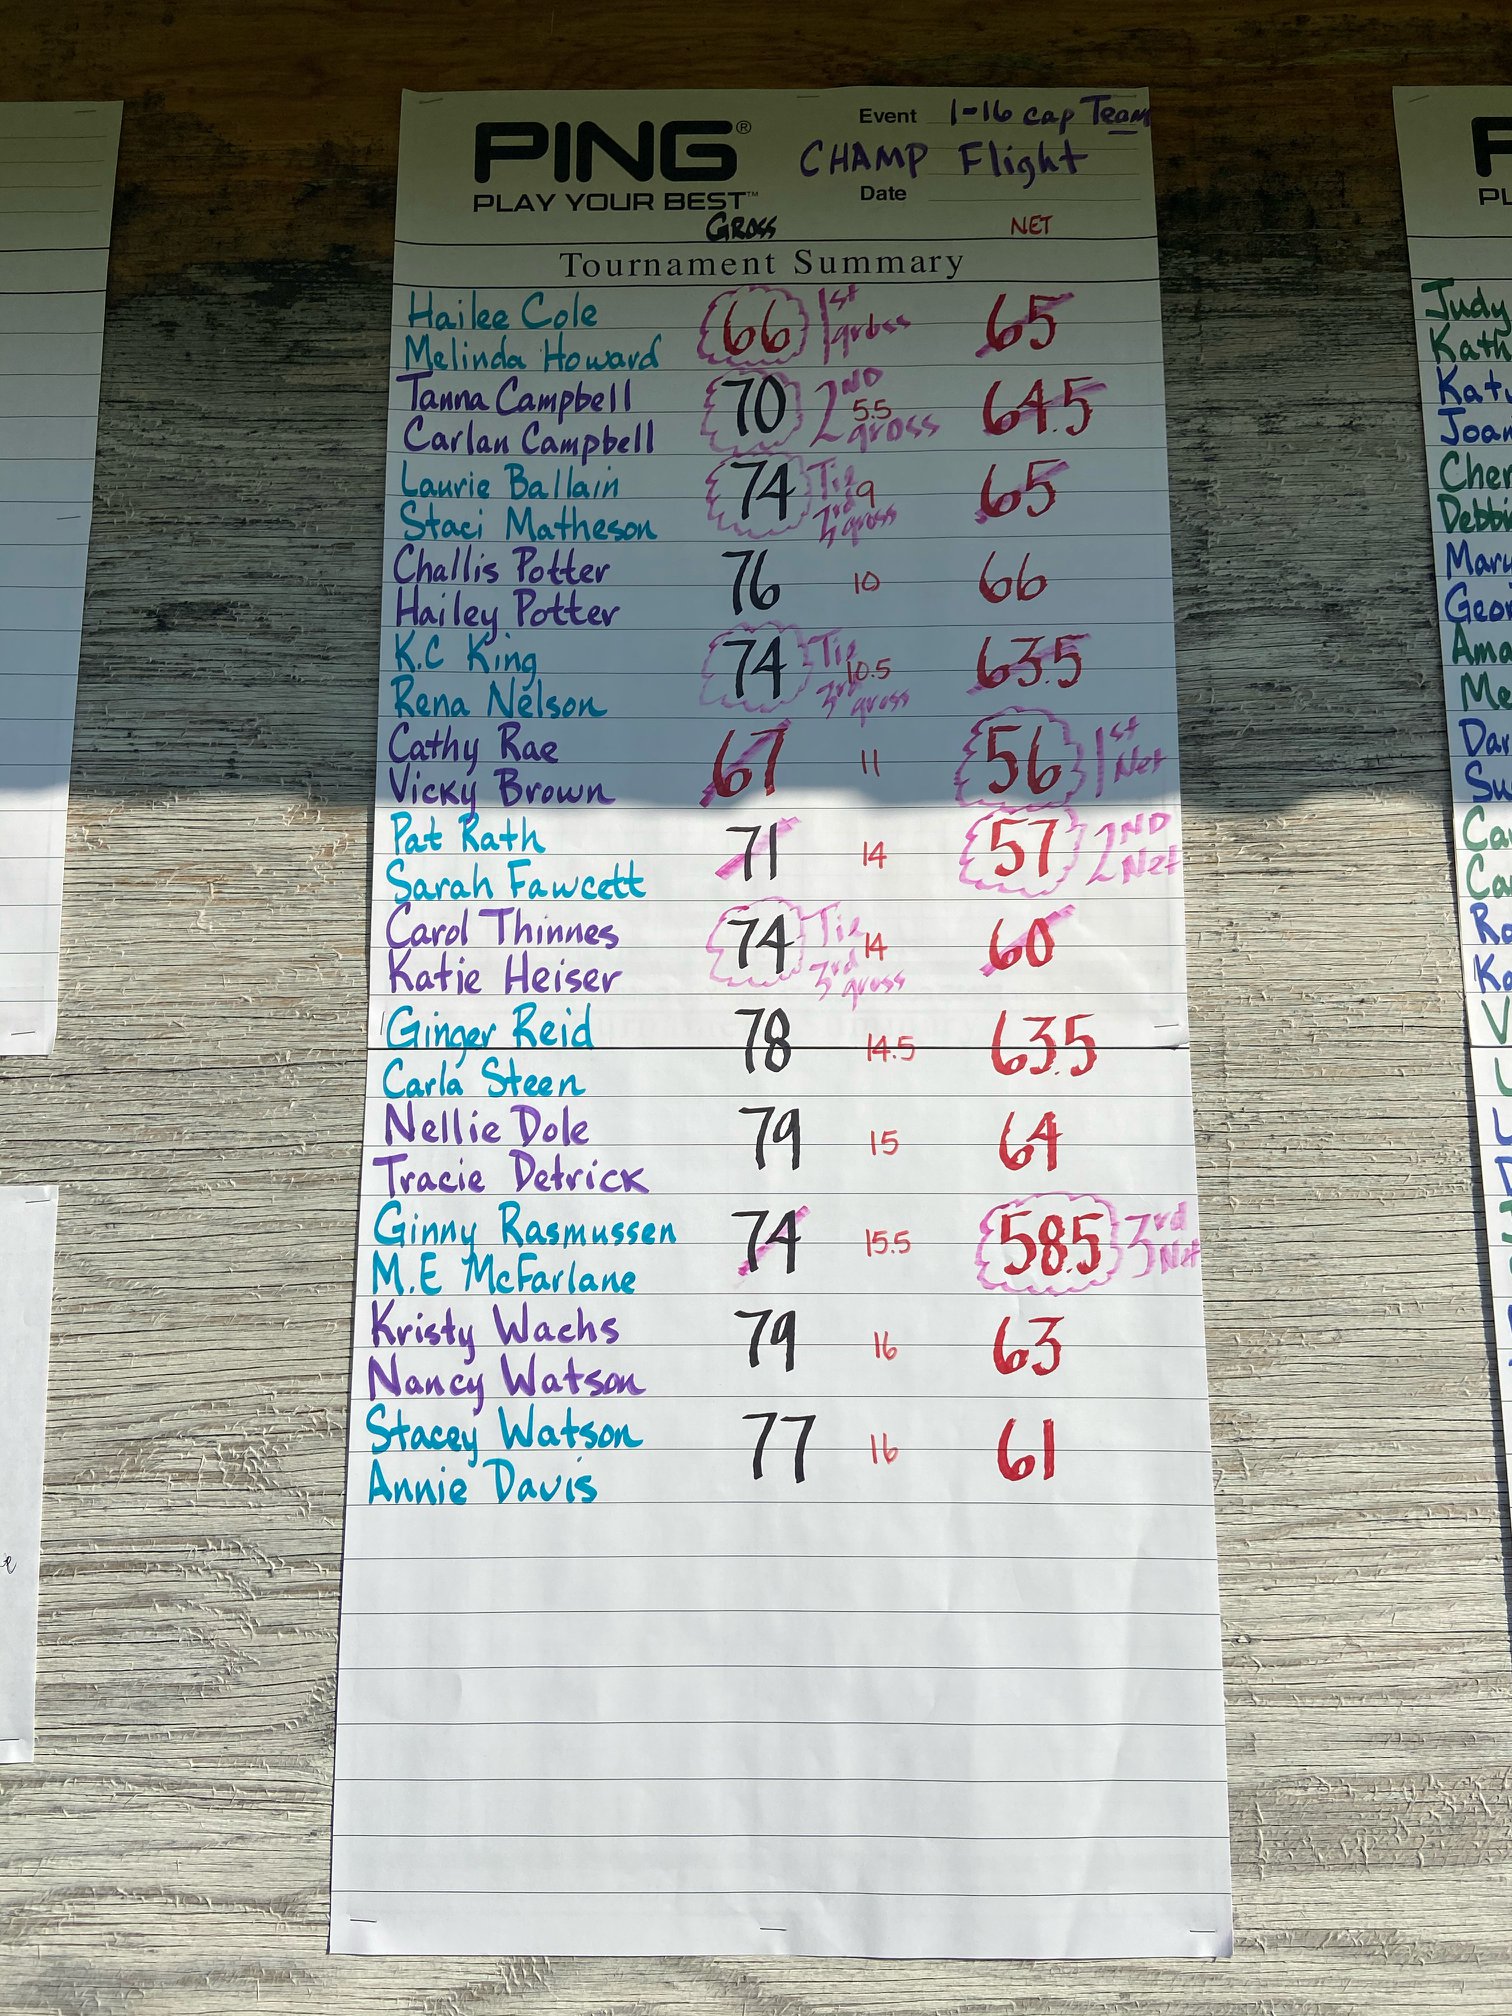 PING®
PLAY YOUR BEST™
Event 1-16 cap Team
CHAMP Flight
Date
GROSS NET
Tournament Summary
Hailee Cole
Melinda Howard
66 1st gross 65
Tanna Campbell
Carlan Campbell
70 2ND gross 5.5 64.5
Laurie Ballain
Staci Matheson
74 Tie 3rd gross 9 65
Challis Potter
Hailey Potter
76 10 66
K.C King
Rena Nelson
74 Tie 3rd gross 10.5 63.5
Cathy Rae
Vicky Brown
67 11 56 1st Net
Pat Rath
Sarah Fawcett
71 14 57 2ND Net
Carol Thinnes
Katie Heiser
74 Tie 3rd gross 14 60
Ginger Reid
Carla Steen
78 14.5 63.5
Nellie Dole
Tracie Detrick
79 15 64
Ginny Rasmussen
M.E McFarlane
74 15.5 58.5 3rd Net
Kristy Wachs
Nancy Watson
79 16 63
Stacey Watson
Annie Davis
77 16 61
Judy
Kath
Joan
Cher
Ama
Me
Dar
Su
Ca
Ca
Ro
Ko